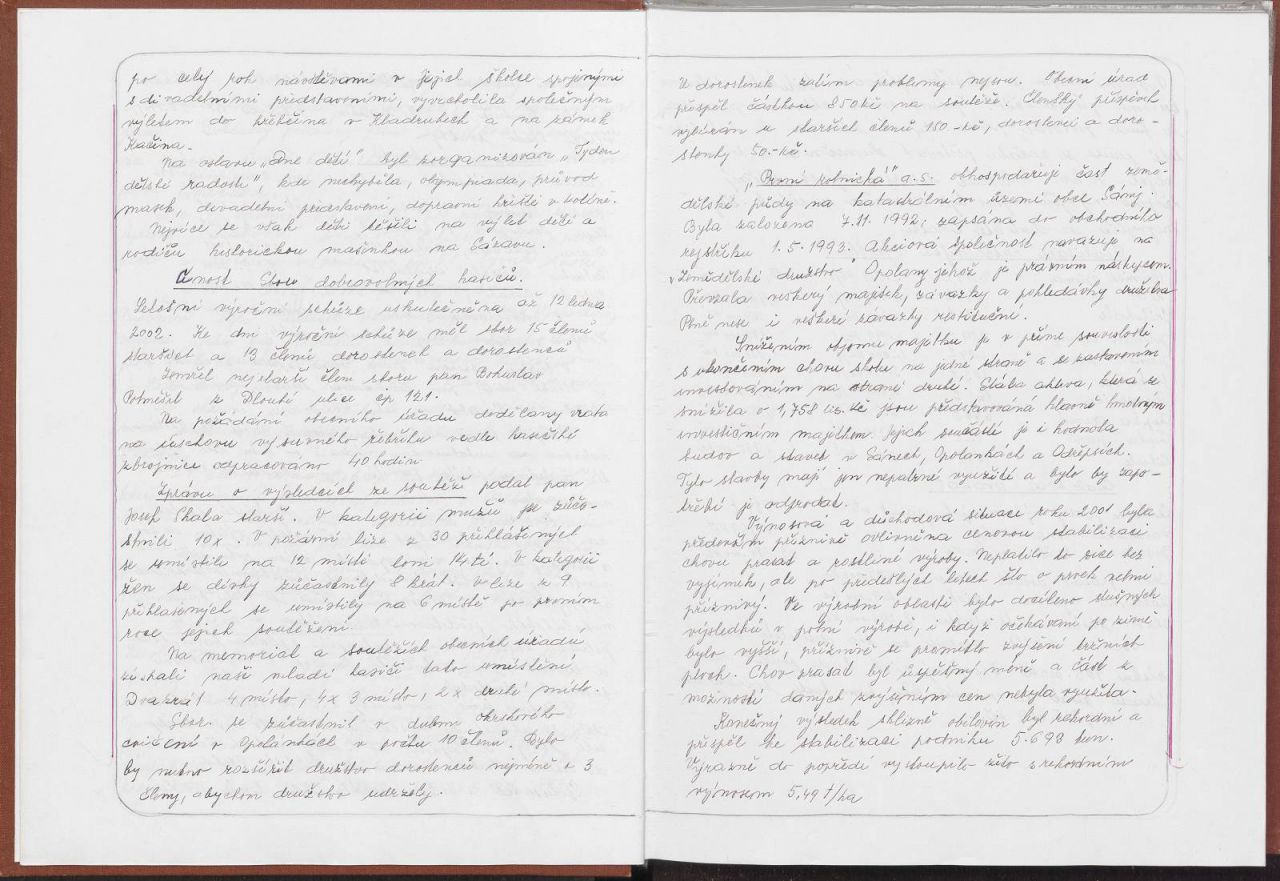 po celý rok návštěvami v jejich školce spojenými
s divadelními představeními, vyvrcholila společným
výletem do hřebčína v Kladrubech a na zámek
Kačina.
Na oslavu „Dne dětí" byl zorganizován „Týden
dětské radosti", kde nechyběla, olympiada, průvod
masek, divadelní představení, dopravní hřiště v Kolíně.
Nejvíce se však děti těšili na výlet dětí a
rodičů historickou mašinkou na Sázavu.
Činost Sboru dobrovolných hasičů.
Letošní výroční schůze uskutečněna až 12 ledna
2002. Ke dni výroční schůze měl sbor 15 členů
starších a 13 členů dorostenek a dorostenců
Zemřel nejstarší člen sboru pan Bohuslav
z Dlouhé ulice čp 121.
Na požádání obecního úřadu dodělany vrata
na úschovu výsuvného žebříku vedle hasičské
zbrojnice odpracováno 40 hodin
Zprávu o výsledcích ze soutěží podal pan
Josef Skala starší. V kategorii mužů se zúča-
stnili 10x. V požární lize z 30 přihlášených
se umístili na 12 místě loni 14tí. V kategorii
žen se dívky zúčastnily 8 krát. V lize z 9
přihlášených se umístily na 6 místě po prvním
roce jejich soutěžení.
Na memorial a soutěžích obecních úřadů
získali naši mladí hasiči tato umístění.
Dvakrát 4 místo, 4x 3 místo, 2x druhé místo.
Sbor se zúčastnil v dubnu okrskového
cvičení v Opolánkách v počtu 10 členů. Bylo
by nutno rozšířit družstvo dorostenců nejméně o 3
členy, abychom družstvo udrželi.
U dorostenek zatím problemy nejsou. Obecní úřad
přispěl částkou 850 kč na soutěže. Členský příspěvek
vybírán u starších členů 150.-kč, dorostenci a doro-
stenky 50.-kč.
„První rolnická" a.s. obhospodařuje část země-
dělské půdy na katastrálním území obce Sány.
Byla založena 7.11 1992, zapsána do obchodního
rejstříku 1.5.1993. Akciová společnost navazuje na
„Zemědělské družstvo" Opolany jehož je právním nástupcem.
Převzala veškerý majetek, závazky a pohledávky družstva
Plně nese i veškeré závazky restituční.
Snížením objemu majetku je v přímé souvislosti
s ukončením chovu skotu na jedné straně a se zastaveným
investováním na straně druhé. Stálá aktiva, která se
snížila o 1,758 tis. kč jsou představována hlavně hmotným
investičním majetkem. Jejich součástí je i hodnota
budov a staveb v Sánech, Opolánkách a Odřepsích.
Tyto stavby mají jen nepatrné využití a bylo by zapo-
třebí je odprodat.
Výnosová a důchodová situace roku 2001 byla
především příznivě ovlivněna cenovou stabilizací
chovu prasat a rostliné výroby. Neplatilo to sice bez
vyjímek, ale po předešlých letech šlo o prvek velmi
příznivý. Ve výrobní oblasti bylo docíleno slušných
výsledků v polní výrobě, i když očekávaní po zimě
bylo vyšší, příznivě se promítlo zvýšení tržních
ploch. Chov prasat byl úspěšný méně a část z
možností daných zvýšením cen nebyla využita.
Konečný výsledek sklizně obilovin byl rekordní a
přispěl ke stabilizaci podniku 5.693 tun.
Výrazně do popředí vystoupilo žito s rekordním
výnosem 5,49 t/ha